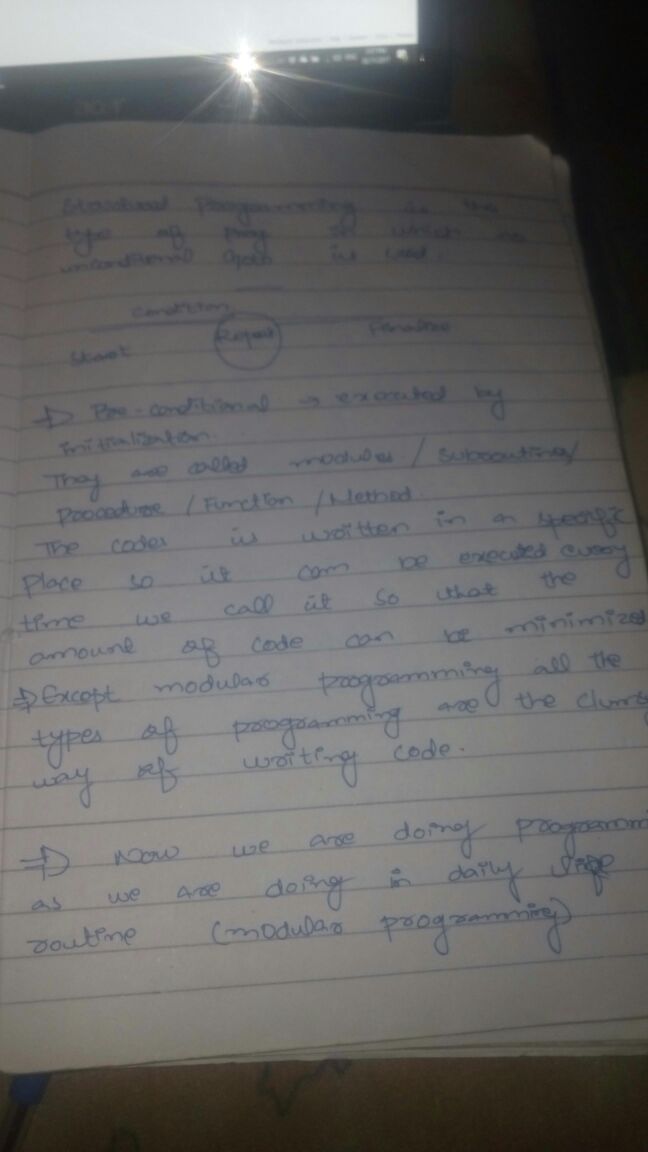 Structured Programming is the
type of prog in which no
unconditional goto is used.
Condition
Start Repeat Finalize
⇒ Pre-conditional → executed by
initialisation.
They are called modules / Subroutine/
Procedure / Function / Method.
The codes is written in a specific
Place so it can be executed every
time we call it so that the
amount of code can be minimized
⇒ Except modular programming all the
types of programming are the clums
way of writing code.
⇒ Now we are doing programmi
as we are doing in daily life
routine (modular programming)